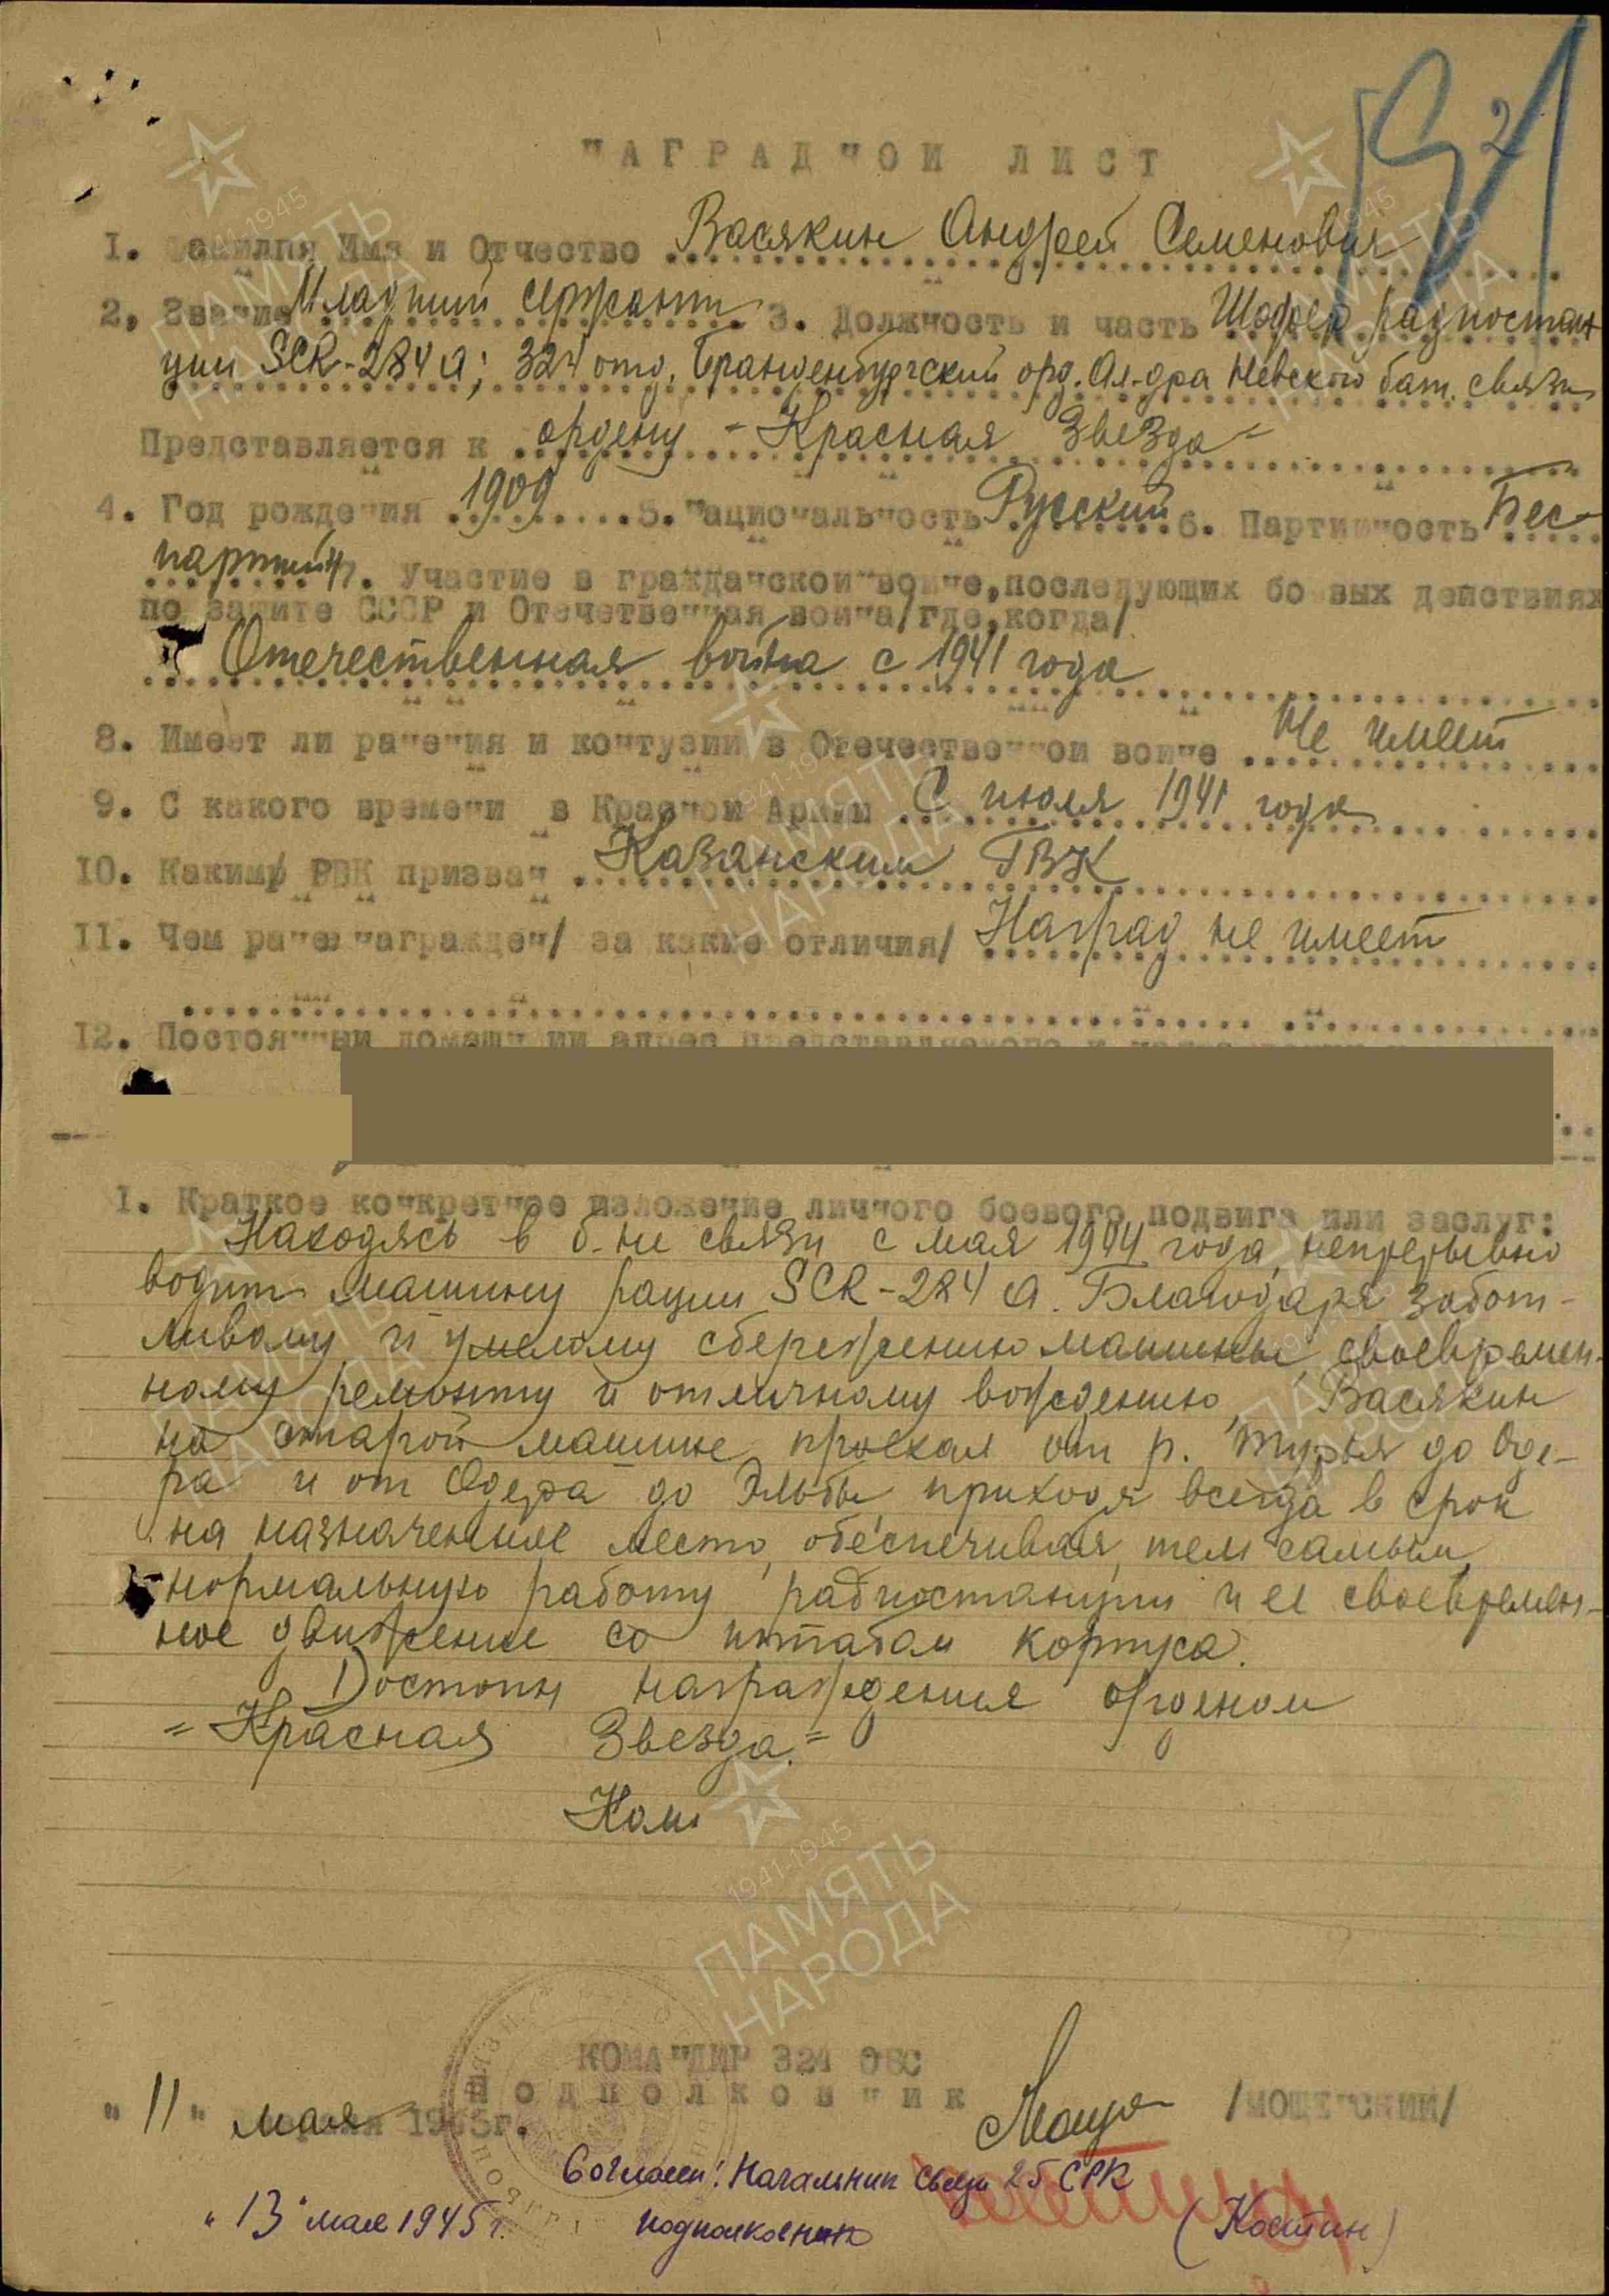 НАГРАДНОЙ ЛИСТ
1. Фамилия Имя и Отчество Васякин Андрей Семенович
2, Звание Младший сержант 3. Должность и часть Шофер радиостан
ции SCR-284 А; 324 отд. Бранденбургский орд. Ал-дра Невского бат. связи
Представляется к ордену "Красная Звезда"
4. Год рождения 1909 5. Национальность Русский 6. Партийность Бес-
партийн 7. Участие в гражданской войне, последующих боевых действиях
по защите СССР и Отечественная война/где, когда/
Отечественная война с 1941 года
8. Имеет ли ранения и контузии в Отечественной войне Не имеет
9. С какого времени в Красной Армии С июля 1941 года
10. Каким РВК призван Казанским ГВК
11. Чем ранее награжден/ за какие отличия/ Наград не имеет
12. Постоянный домашний адрес представляемого к
1. Краткое конкретное изложение личного боевого подвига или заслуг:
Находясь в б-не связи с мая 1944 года, непрерывно
водит машину рации SCR-284 А. Благодаря забот-
ливому и умелому сбережению машины, своевремен-
ному ремонту и отличному вождению, Васякин
на старой машине проехал от р. Турья до Оде-
ра и от Одера до Эльбы, приходя всегда в срок
на назначенное место, обеспечивая, тем самым,
нормальную работу радиостанции и ее своевремен-
ное движение со штабом корпуса.
Достоин награждения орденом
"Красная Звезда."
Ком
КОМАНДИР 324 ОБС
Подполковник /МОЩЕНСКИЙ/
"11" мая 1945г.
Согласен: Начальник связи 25 СРК
"13" мая 1945 г. подполковник (Костин)
1941-1945
ПАМЯТЬ
НАРОДА